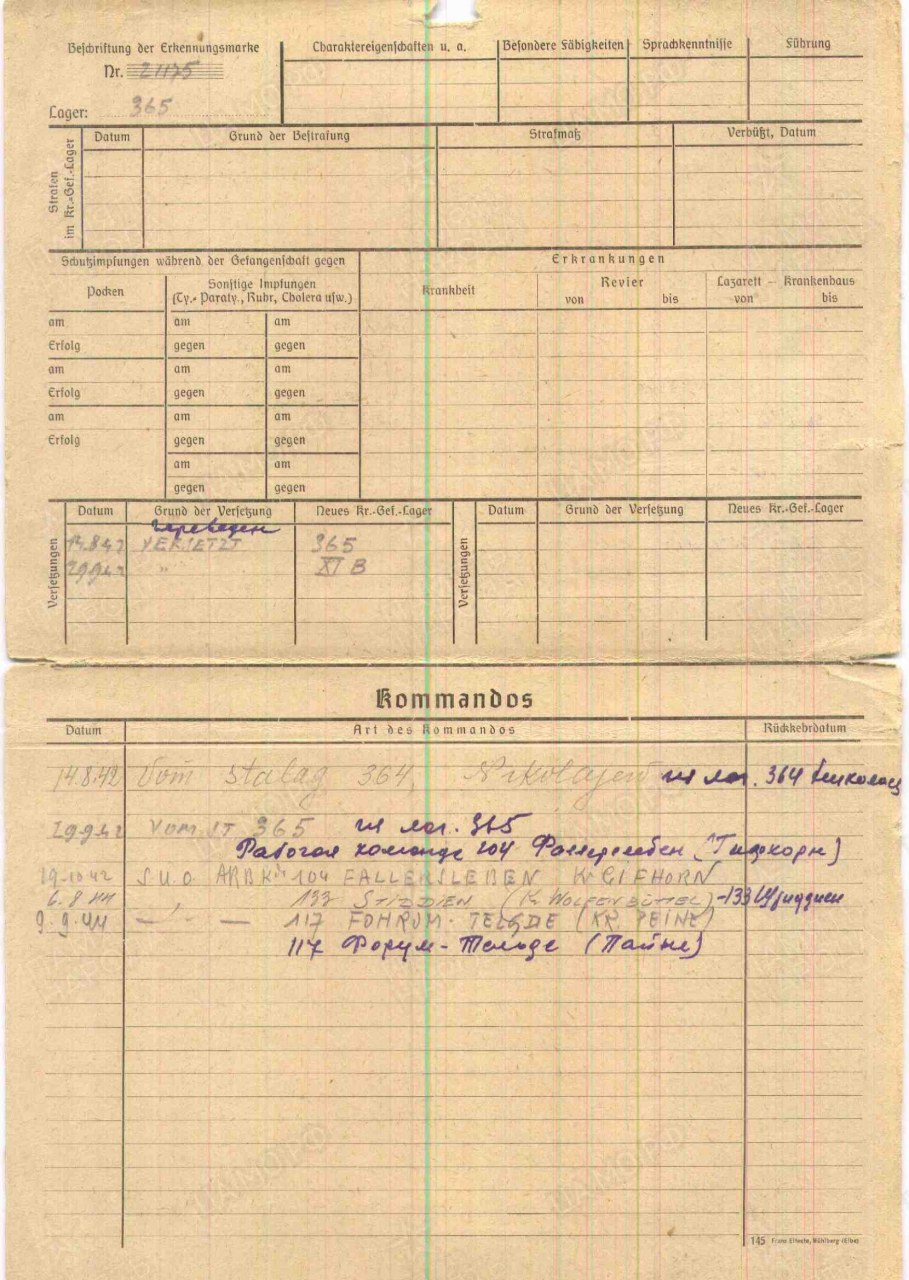 Beschriftung der Erkennungsmarke
Nr. 21175
Lager: 365
Charaktereigenschaften u. a.
Besondere Fähigkeiten
Sprachkenntnisse
Führung
Strafen im Kr.-Gef.-Lager
Datum
Grund der Bestrafung
Strafmaß
Verbüßt, Datum
Schutzimpfungen während der Gefangenschaft gegen
Erkrankungen
Pocken
Sonstige Impfungen
(Ty.- Paraty., Ruhr, Cholera usw.)
Krankheit
Revier
von bis
Lazarett – Krankenhaus
von bis
am am am
Erfolg gegen gegen
am am am
Erfolg gegen gegen
am am am
Erfolg gegen gegen
am am
gegen gegen
Versetzungen
Datum Grund der Versetzung Neues Kr.-Gef.-Lager
переведен
14.8.42 VERSETZT 365
29.9.42 " XI B
Versetzungen
Datum Grund der Versetzung Neues Kr.-Gef.-Lager
Kommandos
Datum Art des Kommandos Rückkehrdatum
14.8.42 Vom Stalag 364 Nikolajew из лаг. 364 Николаев
29.9.42 VOM ST 365 из лаг. 365
Рабочая команда 104 Фаллерслебен (Гифхорн)
19.10.42 104 FALLERSLEBEN KR GIFHORN
6.8.44 133 (K. WOLFENBÜTTEL) -133
9.9.44 — — 117 FOHRUM-TELGDE (KR PEINE)
117 Форум-Тельгде (Пайне)
145 Franz Ellische, Mühlberg (Elbe)